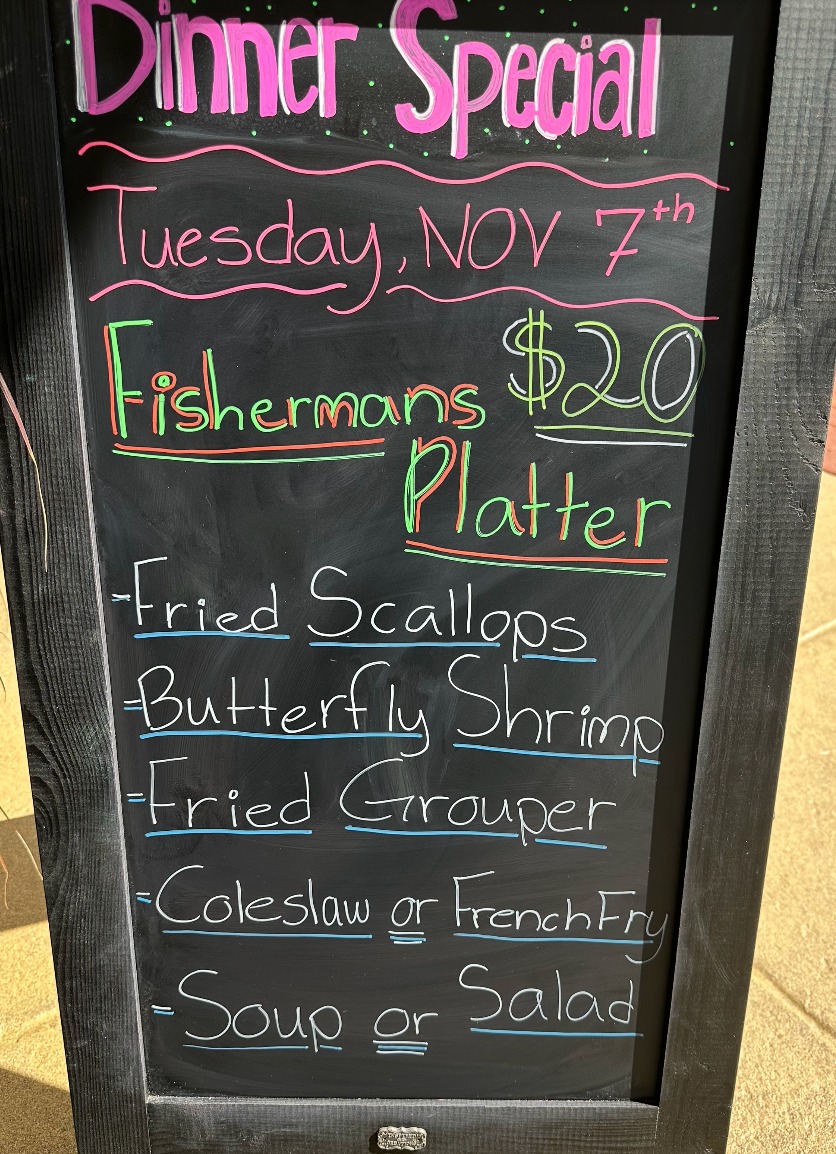 Dinner Special
Tuesday, NOV 7th
Fishermans $20
Platter
-Fried Scallops
=Butterfly Shrimp
=Fried Grouper
=Coleslaw or French Fry
=Soup or Salad